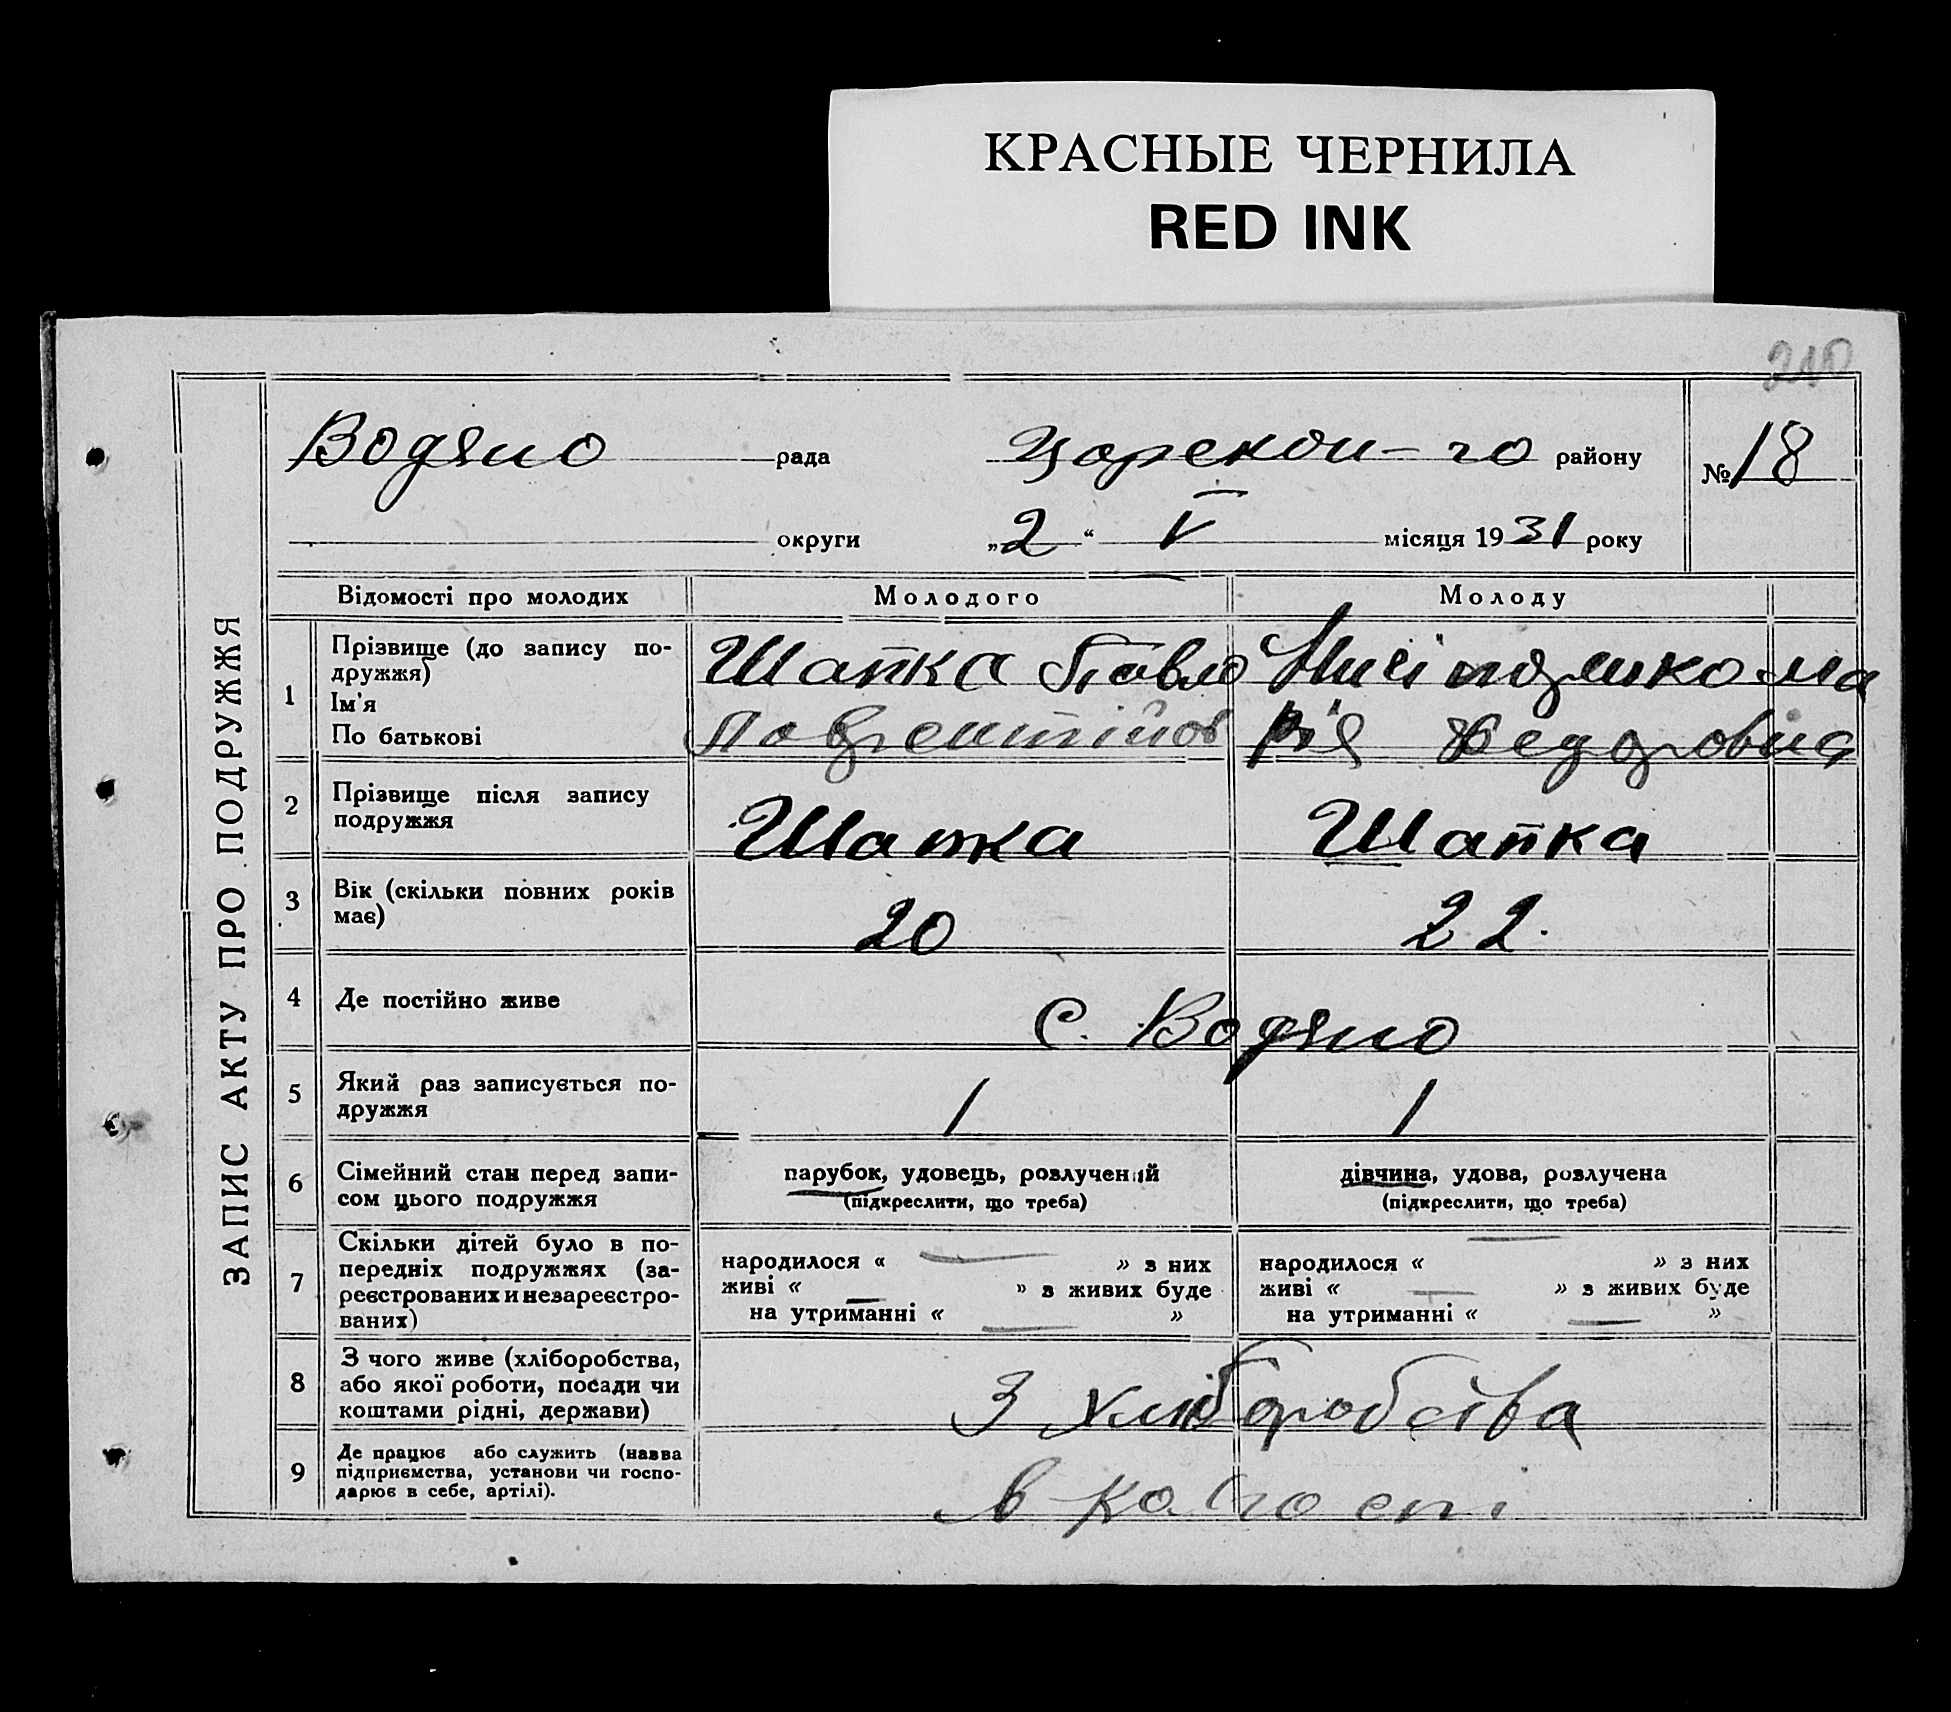 КРАСНЫЕ ЧЕРНИЛА
RED INK
210
ЗАПИС АКТУ ПРО ПОДРУЖЖЯ
Водяно рада Царекон-го району №18
округи „2“ V місяця 1931 року
Відомості про молодих Молодого Молоду
1 Прізвище (до запису по-
дружжя)
Ім'я
По батькові
Шапка Павло
ма
рія Федоровна
2 Прізвище після запису
подружжя
Шапка Шапка
3 Вік (скільки повних років
має)
20 22.
4 Де постійно живе
с. Водяно
5 Який раз записується по-
дружжя
1 1
6 Сімейний стан перед запи-
сом цього подружжя
парубок, удовець, розлучений
(підкреслити, що треба)
дівчина, удова, розлучена
(підкреслити, що треба)
7 Скільки дітей було в по-
передніх подружжях (за-
реєстрованих и незареєстро-
ваних)
народилося « — » з них
живі « — » з живих буде
на утриманні « — »
народилося « — » з них
живі « — » з живих буде
на утриманні « — »
8 З чого живе (хліборобства,
або якої роботи, посади чи
коштами рідні, держави)
З хліборобства
9 Де працює або служить (назва
підприємства, установи чи госпо-
дарює в себе, артілі).
в